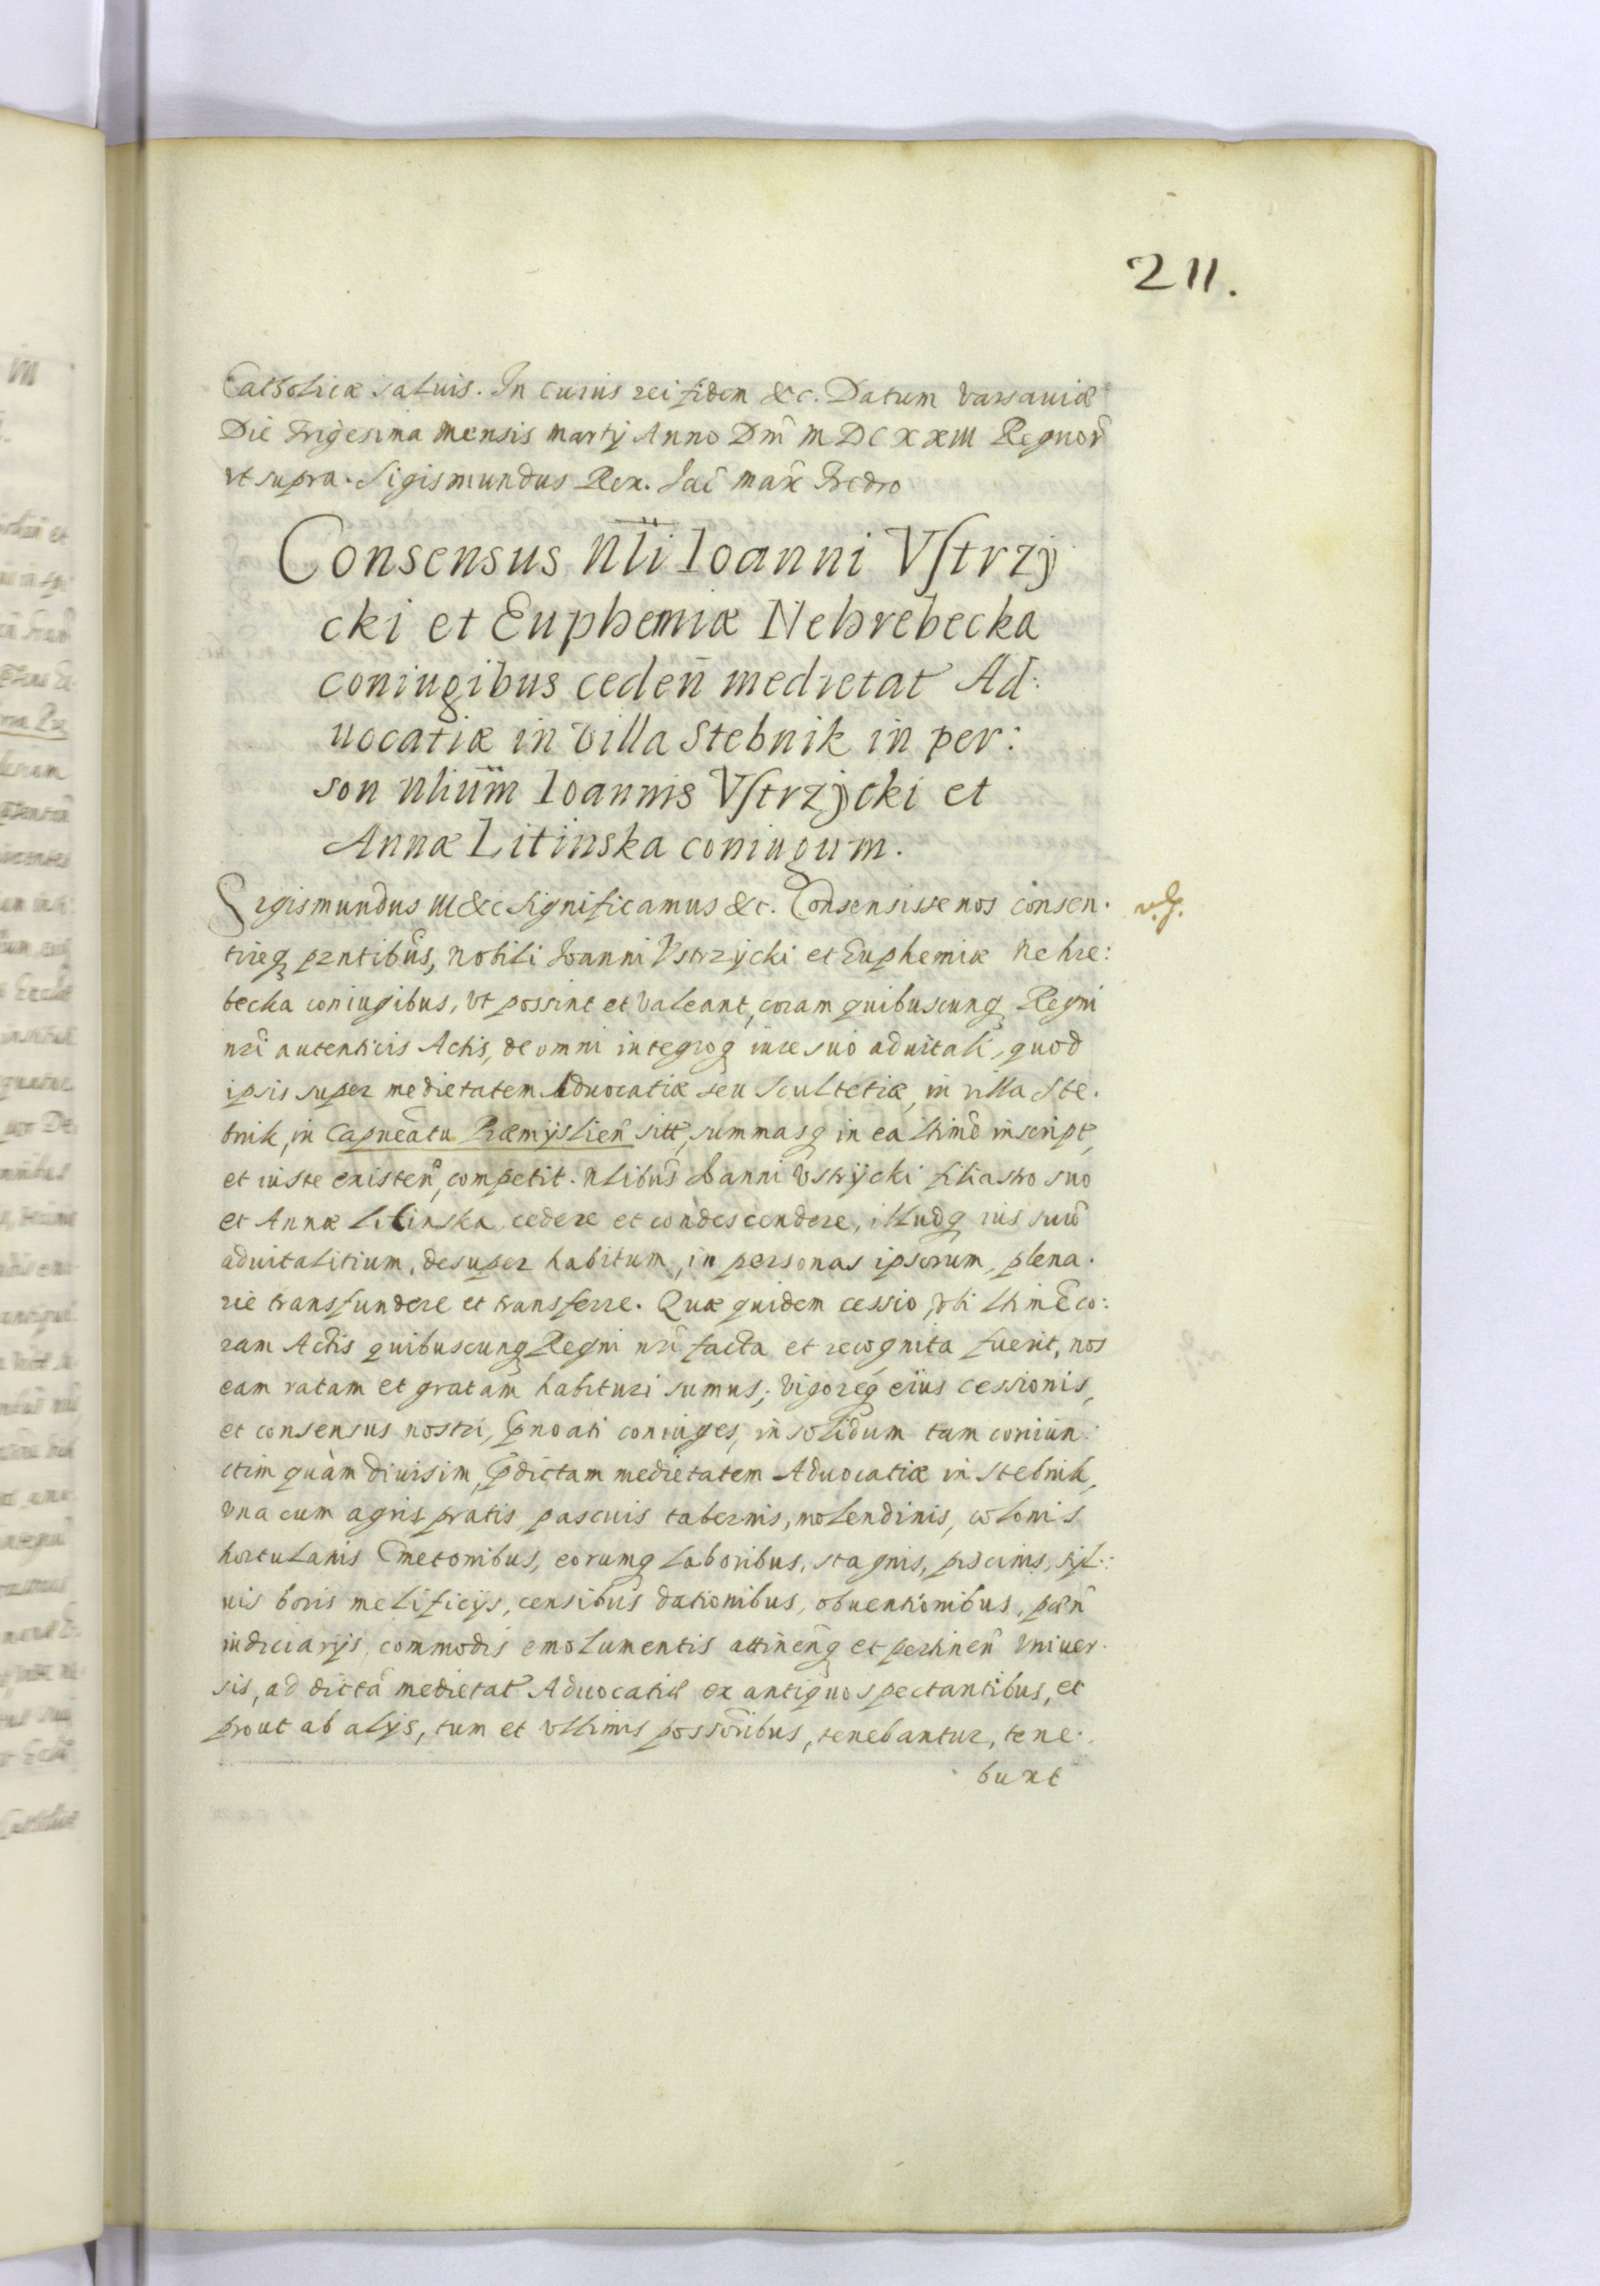 211.
Catholicæ saluis. In cuius rei fidem &c. Datum Varsauiæ
Die Trigesima mensis Martij Anno Dni MDCXXIII Regnor
vt supra. Sigismundus Rex. Jac Max Fredro
Consensus Nli Ioanni Vstrzy
cki et Euphemiæ Nehrebecka
coniugibus ceden medietat Ad:
uocatiæ in villa Stebnik in per:
son Nlium Ioannis Vstrzycki et
Annæ Litinska coniugum.
Sigismundus III &c Significamus &c. Consensisse nos consen.
tireq pntibus, Nobili Ioanni Vstrzycki et Euphemiæ Nehre:
becka coniugibus, vt possint et valeant, coram quibuscunq Regni
nri autenticis Actis, de omni integroq iure suo aduitali, quod
ipsis super medietatem Aduocatiæ seu Scultetiæ, in villa Ste.
bnik, in Capneatu Præmyslien sitt, summasq in ea ltime inscript,
et iuste existen, competit. Nlibus Ioanni Vstrycki filiastro suo
et Annæ Litinska cedere et condescendere, illudq ius suu
aduitalitium, desuper habitum, in personas ipsorum, plena.
rie transfundere et transferre. Quæ quidem cessio, vbi ltime co:
ram Actis quibuscunq Regni nri facta et recognita fuerit, nos
eam ratam et gratam habituri sumus; vigoreq eius cessionis,
et consensus nostri, pnoati coniuges, in solidum tam coniun:
ctim quàm diuisim, pdictam medietatem Aduocatiæ in Stebnik,
vna cum agris pratis pascuis tabernis, molendinis, colonis
hortulanis Cmetonibus, eorumq laboribus, stagnis, piscinis, syl:
uis boris melificijs, censibus dationibus, obuentionibus, pæn
iudiciarijs, commodis emolumentis attinenq et pertinen vniuer.
sis, ad dictã medietat Aduocatiæ ex antiquo spectantibus, et
prout ab alijs, tum et vltimis possoribus, tenebantur, tene.
bunt